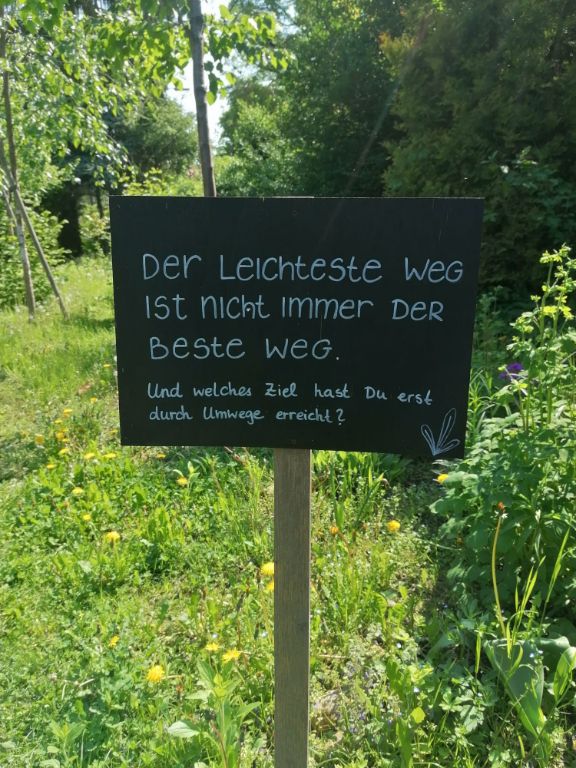 Der leichteste Weg
ist nicht immer der
beste Weg.
Und welches Ziel hast Du erst
durch Umwege erreicht?